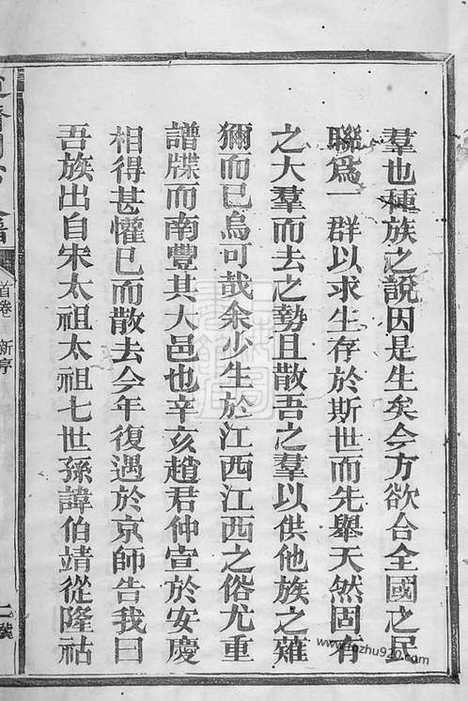 羣也種族之說因是生矣今方欲合全國之民
聯爲一群以求生存於斯世而先舉天然固有
之大羣而去之勢且散吾之羣以供他族之薙
獮而已烏可哉余少生於江西江西之俗尤重
譜牒而南豐其大邑也辛亥趙君仲宣於安慶
相得甚懽已而散去今年復遇於京師告我曰
吾族出自宋太祖太祖七世孫諱伯靖從隆祐
首卷 新序